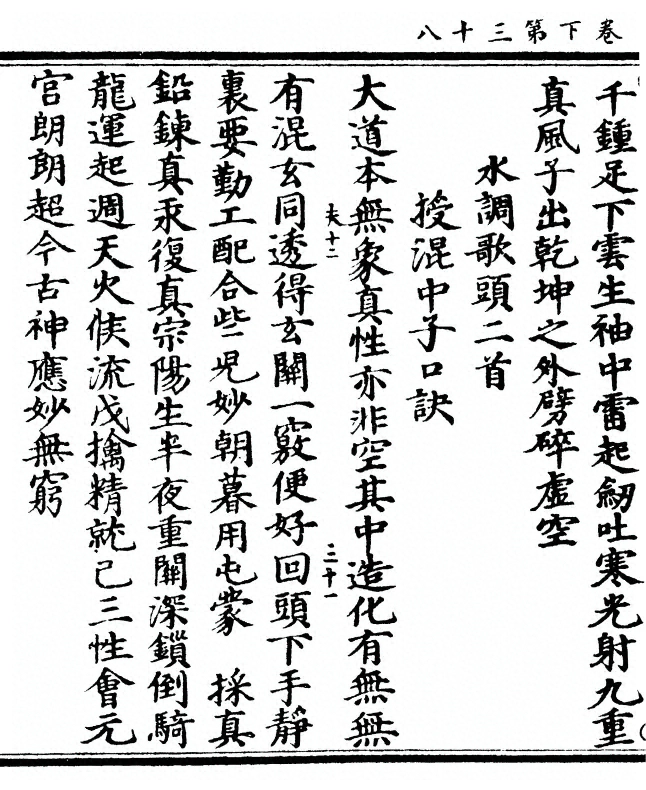 卷下第三十八
千鍾足下雲生袖中雷起劒吐寒光射九重
真風子出乾坤之外劈碎虛空
水調歌頭二首
授混中子口訣
大道本無象真性亦非空其中造化有無無
夫十二
三十一
有混玄同透得玄關一竅便好回頭下手靜
裏要勤工配合些兒妙朝暮用屯蒙　採真
鉛鍊真汞復真宗陽生半夜重關深鎖倒騎
龍運起週天火候流戊擒精就己三性會元
宮朗朗超今古神應妙無窮